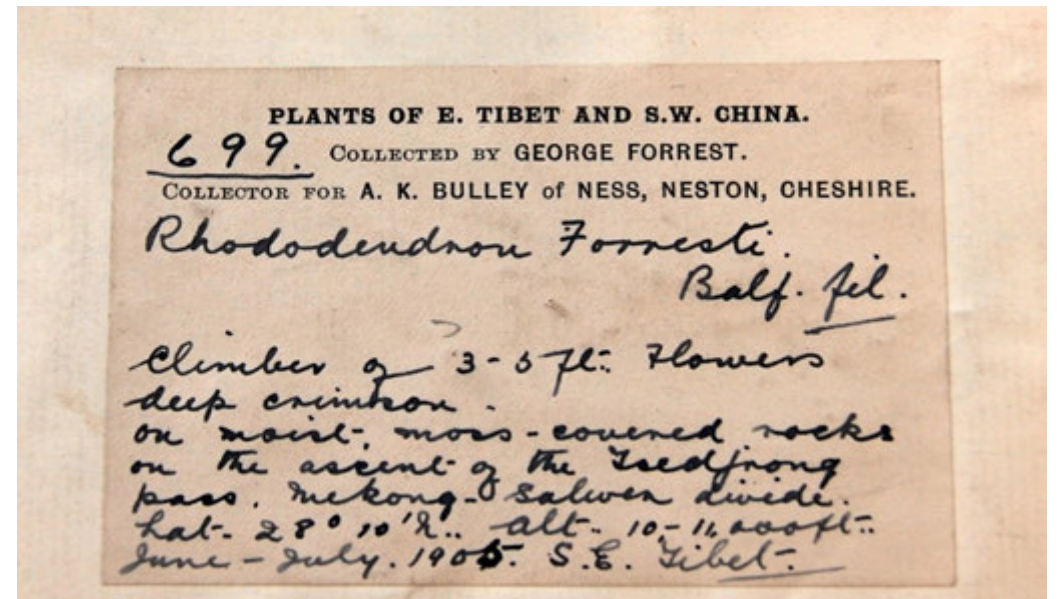 PLANTS OF E. TIBET AND S.W. CHINA.
699. COLLECTED BY GEORGE FORREST.
COLLECTOR FOR A. K. BULLEY of NESS, NESTON, CHESHIRE.
Rhododendron Forresti.
Balf. fil.
Climber of 3-5 ft. Flowers
deep crimson.
on moist, moss-covered rocks
on the ascent of the Tsedjrong
pass. Mekong-Salwen divide.
Lat. 28° 10' N. Alt. 10-11,000 ft.
June-July. 1905. S.E. Tibet.